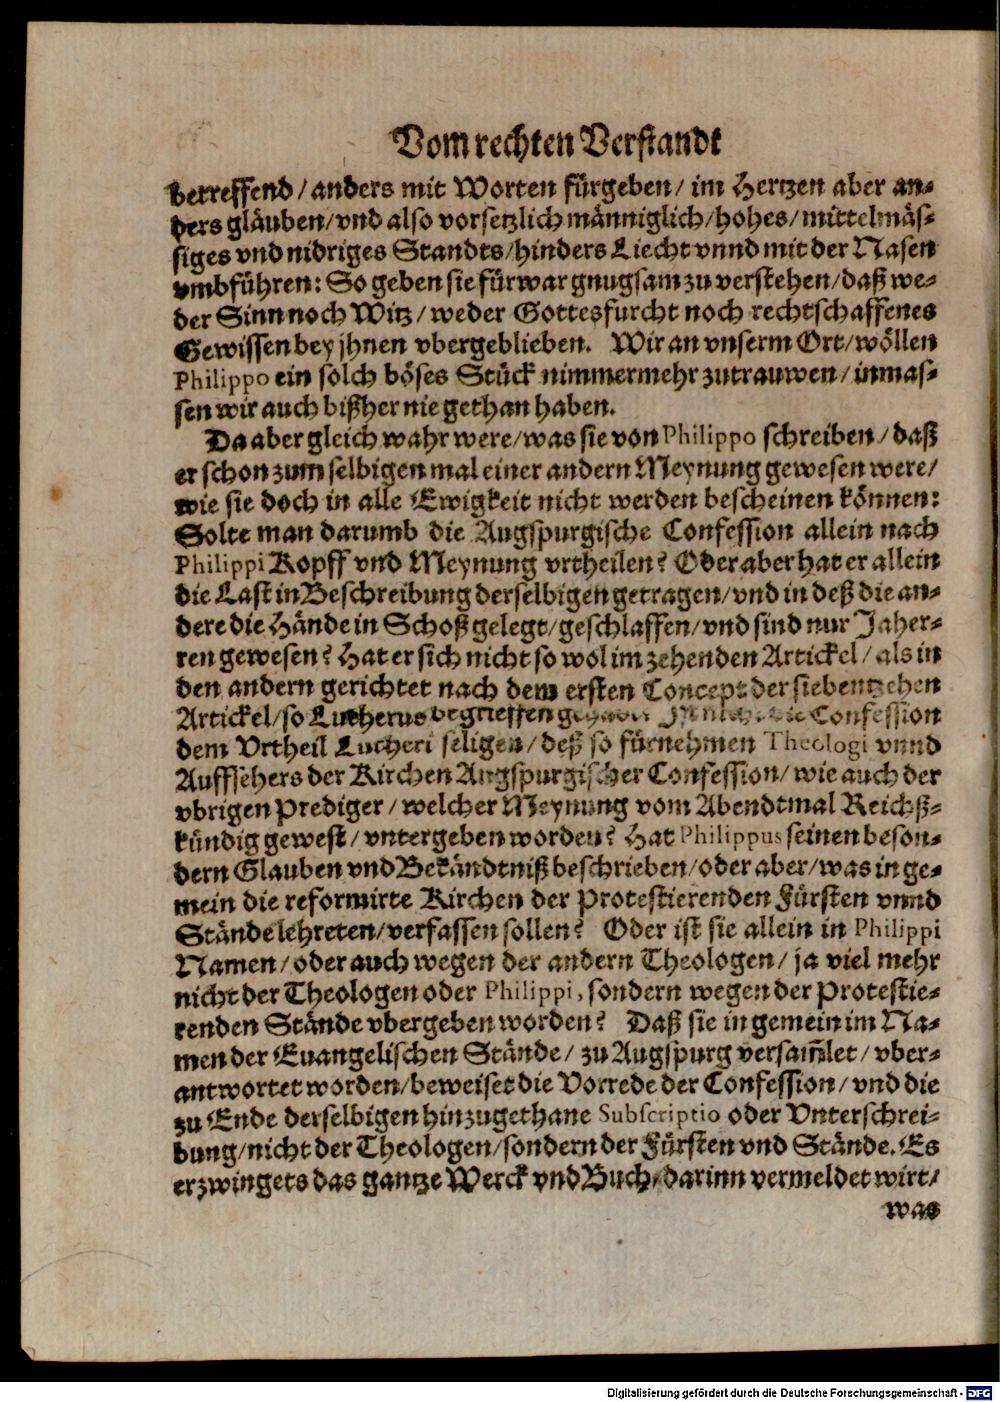 Vom rechten Verstandt
betreffend/ anders mit Worten fürgeben/ im Hertzen aber an-
ders gläuben/ vnd also vorsetzlich männiglich/ hohes/ mittelmäs-
siges vnd nidriges Standts/ hinders Liecht vnnd mit der Nasen
vmbführen: So geben sie fürwar gnugsam zu verstehen/ daß we-
der Sinn noch Witz/ weder Gottesfurcht noch rechtschaffenes
Gewissen bey jhnen vbergeblieben. Wir an vnserm Ort/ wöllen
Philippo ein solch böses Stück nimmermehr zutrauwen/ inmas-
sen wir auch bißher nie gethan haben.
Da aber gleich wahr were/ was sie von Philippo schreiben/ daß
er schon zum selbigen mal einer andern Meynung gewesen were/
wie sie doch in alle Ewigkeit nicht werden bescheinen können:
Solte man darumb die Augspurgische Confession allein nach
Philippi Kopff vnd Meynung vrtheilen? Oder aber hat er allein
die Last in Beschreibung derselbigen getragen/ vnd in deß die an-
dere die Hände in Schoß gelegt/ geschlaffen/ vnd sind nur Jaher-
ren gewesen? Hat er sich nicht so wol im zehenden Artickel/ als in
den andern gerichtet nach dem ersten Concept der siebentzehen
Artickel/ so Lutherus begrieffen Confession
dem Vrtheil Lutheri seligen/ deß so fürnehmen Theologi vnnd
Auffsehers der Kirchen Augspurgischer Confession/ wie auch der
vbrigen Prediger/ welcher Meynung vom Abendtmal Reichß-
kündig gewest/ vntergeben worden? Hat Philippus seinen beson-
dern Glauben vnd Bekändtniß beschrieben/ oder aber/ was in ge-
mein die reformirte Kirchen der Protestierenden Fürsten vnnd
Stände lehreten/ verfassen sollen? Oder ist sie allein in Philippi
Namen/ oder auch wegen der andern Theologen/ ja viel mehr
nicht der Theologen oder Philippi, sondern wegen der Protestie-
renden Stände vbergeben worden? Daß sie in gemein im Na-
men der Euangelischen Stände/ zu Augspurg versam̃let/ vber-
antwortet worden/ beweiset die Vorrede der Confession/ vnd die
zu Ende derselbigen hinzugethane Subscriptio oder Vnterschrei-
bung/ nicht der Theologen/ sondern der Fürsten vnd Stände. Es
erzwingets das gantze Werck vnd Buch/ darinn vermeldet wirt/
was
Digitalisierung gefördert durch die Deutsche Forschungsgemeinschaft - DFG